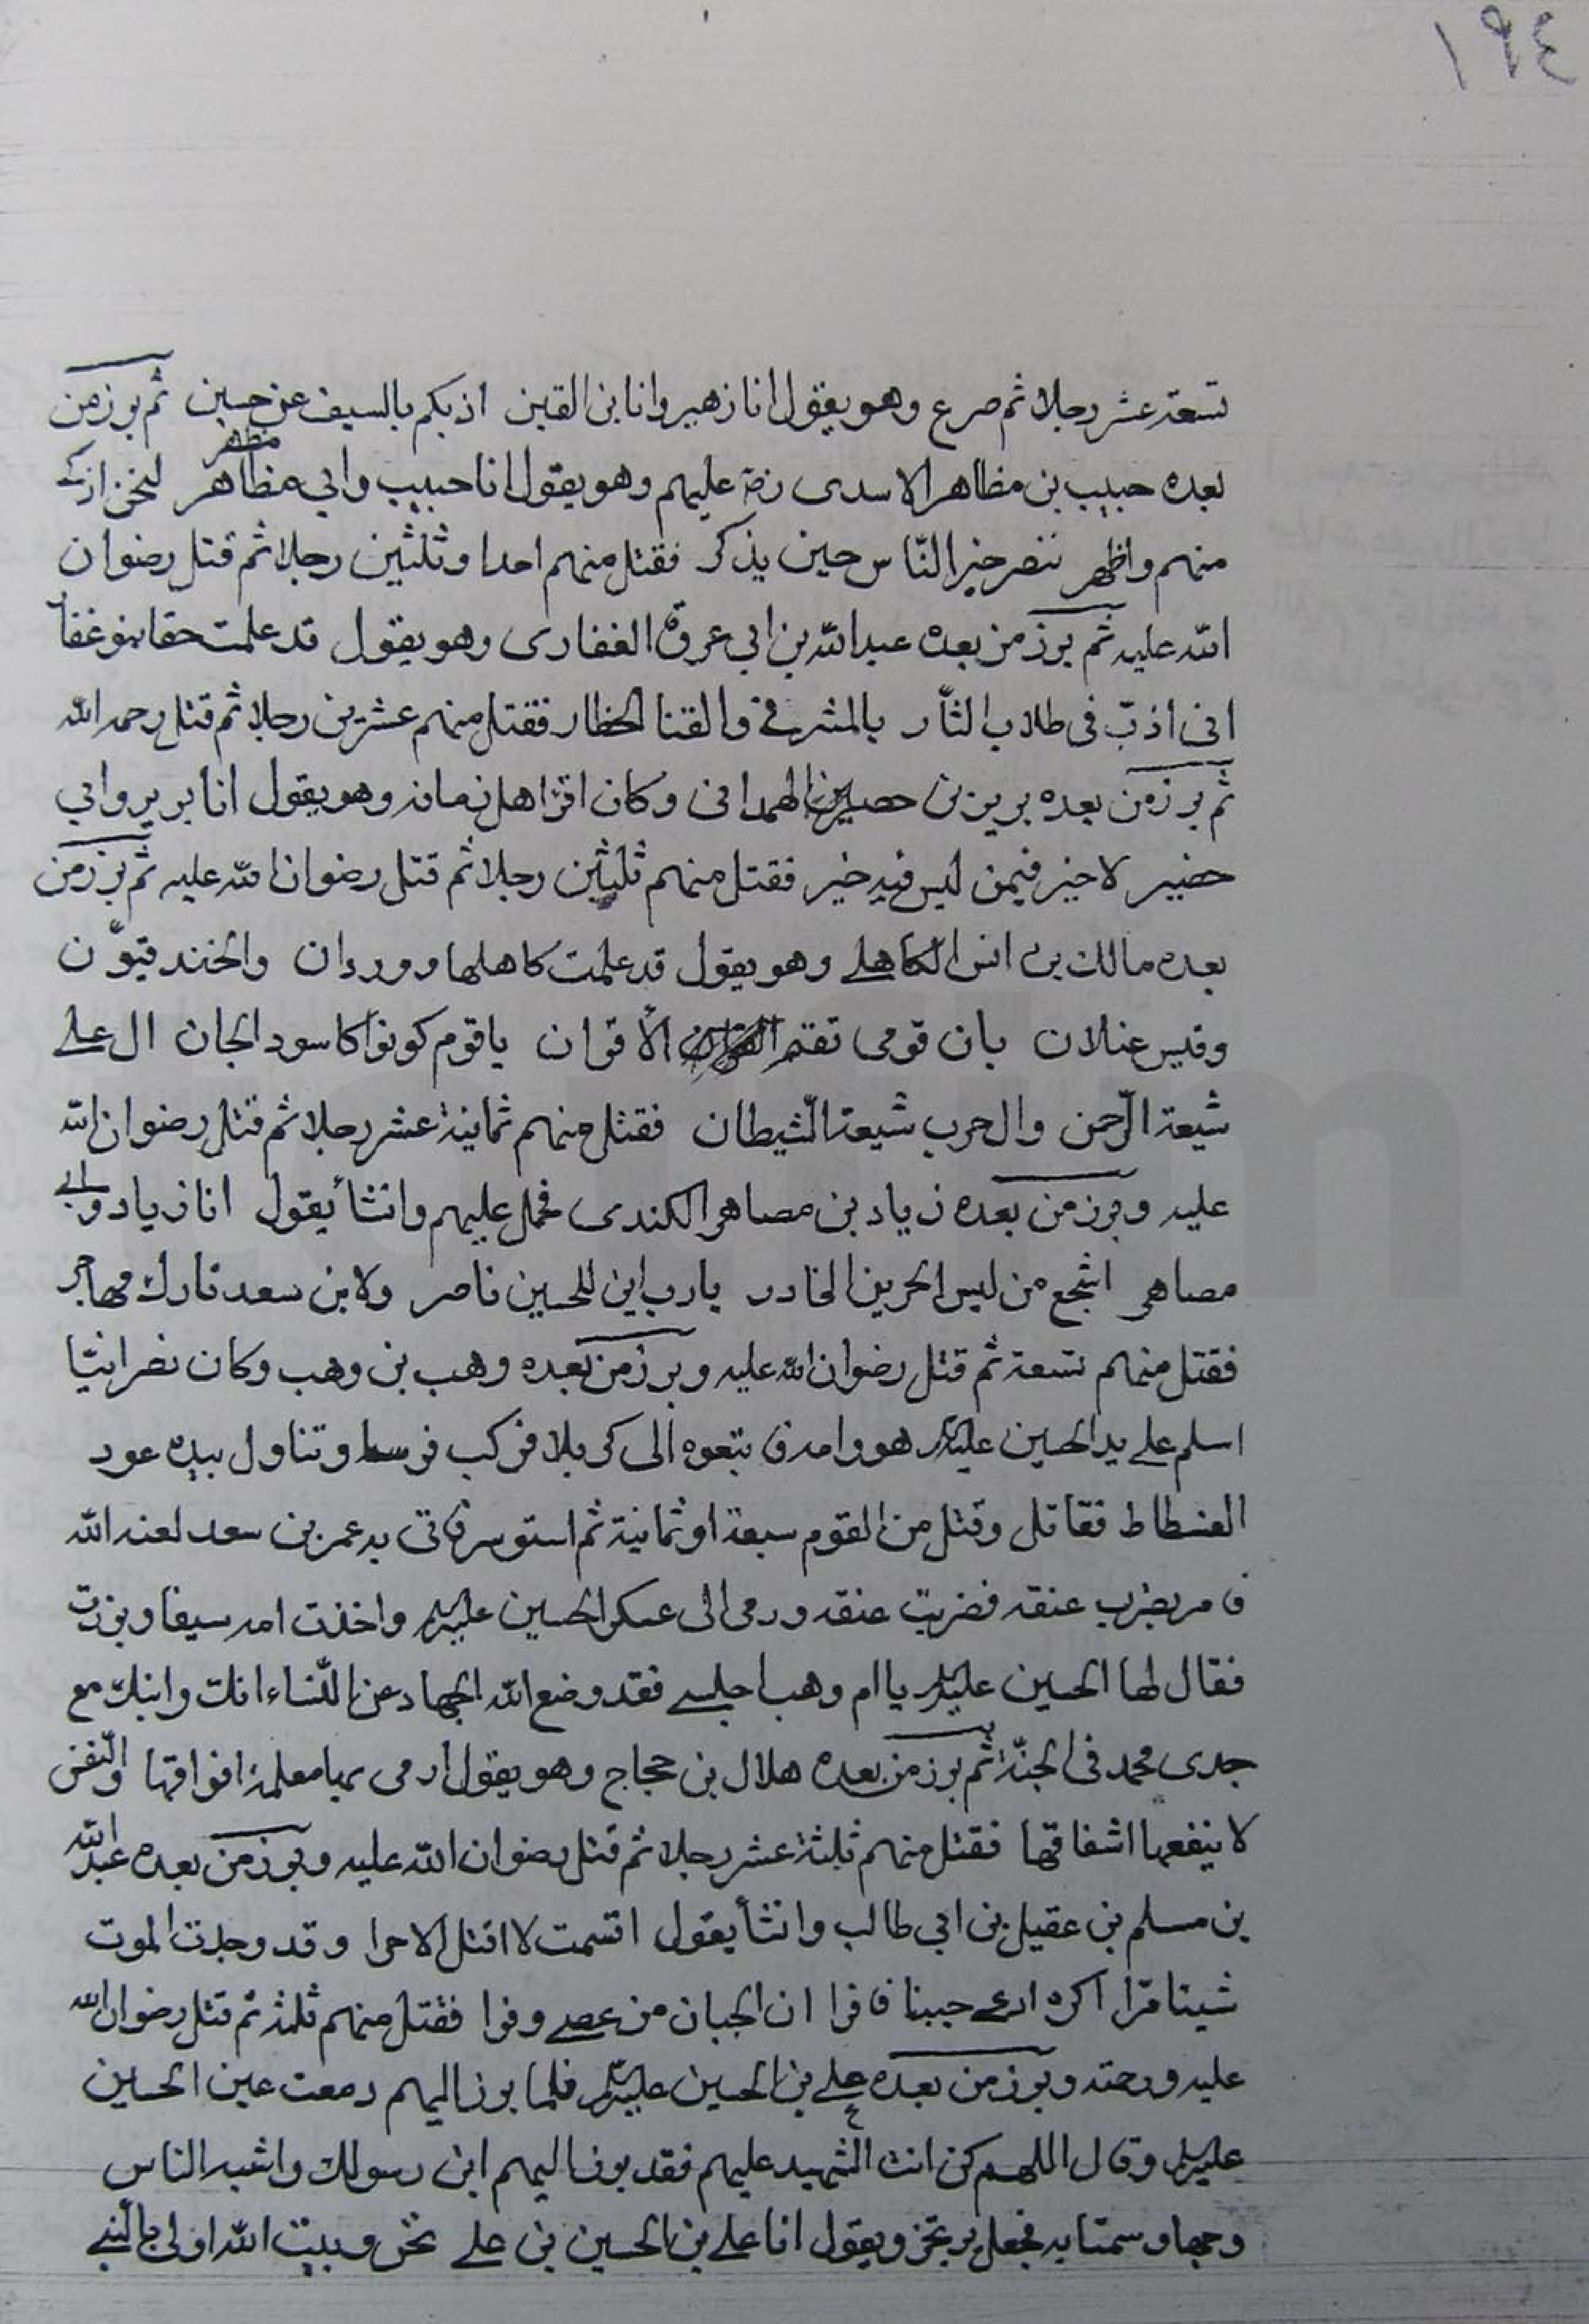 ١٩٤
تسعة عشر رجلا ثم صرع وهو يقول انا زهير وانا بن القين اذبكم بالسيف عن حسين ثم برز من
مظهر
بعده حبيب بن مظاهر الاسدى رضة عليهم وهو يقول انا حبيب وابي مظاهر لنحن ازكى
منهم واظهر ننصر خير الناس حين يذكر فقتل منهم احدا وثلثين رجلا ثم قتل رضوان
الله عليه ثم برز من بعده عبد الله بن ابي عروة الغفارى وهو يقول قد علمت حقا بنو غفار
انى اذبّ فى طلاب الثأر بالمشرفى والقنا الخطار فقتل منهم عشرين رجلا ثم قتل رحمه الله
ثم برز من بعده برير بن حصير الهمدانى وكان اقرا اهل زمانه وهو يقول انا برير وابي
حضير لا خير فيمن ليس فيه خير فقتل منهم ثلثين رجلا ثم قتل رضوان الله عليه ثم برز من
بعده مالك بن انس الكاهلى وهو يقول قد علمت كاهلها ودوردان والخندقيوّن
وقيس عنلان بان قومى تقتم الأقران ياقوم كونوا كاسود الجان ال على
شيعة الرّحمن وال حرب شيعة الشّيطان فقتل منهم ثمانية عشر رجلا ثم قتل رضوان الله
عليه وبرز من بعده زياد بن مصاهر الكندى فحمل عليهم وانشأ يقول انا زياد وابي
مصاهر اشجع من ليس الحرين الخادر يارب اين للحسين ناصر ولابن سعد تارك مهاجر
فقتل منهم تسعة ثم قتل رضوان الله عليه وبرز من بعده وهب بن وهب وكان نصرانيّا
اسلم على يد الحسين عليه السلام هو وامه فاتبعوه الى كربلا فركب فرسا وتناول بيده عود
الفسطاط فقاتل وقتل من القوم سبعة او ثمانية ثم استوسر فاتى به عمر بن سعد لعنه الله
فامر بضرب عنقه فضربت عنقه ورمى الى عسكر الحسين عليه السلام واخذت امه سيفا وبرزت
فقال لها الحسين عليه السلام ياام وهب اجلسى فقد وضع الله الجهاد عن النّساء انك وابنك مع
جدى محمد فى الجنّة ثم برز من بعده هلال بن حجاج وهو يقول ارمى بها معلمة افواقها والنّفس
لا ينفعها اشفاقها فقتل منهم ثلثة عشر رجلا ثم قتل رضوان الله عليه وبرز من بعده عبد الله
بن مسلم بن عقيل بن ابي طالب وانشأ يقول اقسمت لا اقتل الا حرا وقد وجدت الموت
شيئا مرّا اكره ادعى جبينا فافرا ان الجبان من عصى وفرا فقتل منهم ثلثة ثم قتل رضوان الله
عليه ورحمته وبرز من بعده على بن الحسين عليه السلام فلما برز اليهم دمعت عين الحسين
عليه السلام وقال اللهم كن انت الشّهيد عليهم فقد برز اليهم ابن رسولك واشبه الناس
وجها وسمتا به فجعل يرتجز ويقول انا على بن الحسين بن على نحن وبيت الله اولى بالنّبى